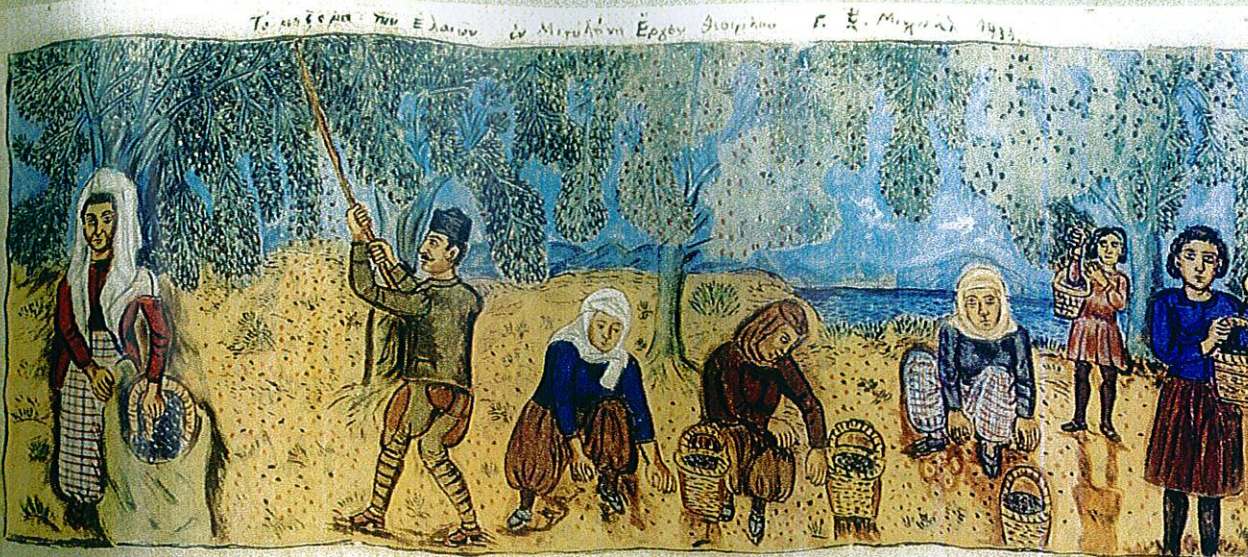 Τό μάζεμα τῶν Ἐλαιῶν ἐν Μυτιλήνῃ Ἔργον Θεοφίλου Γ. Χ. Μιχαήλ 1933